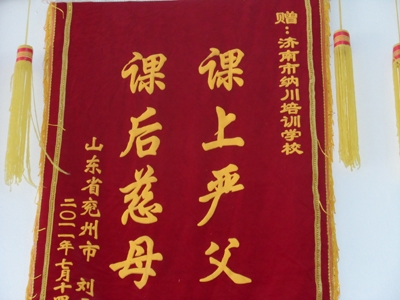 赠：济南市纳川培训学校
课上严父
课后慈母
山东省兖州市 刘
二〇一一年七月十四